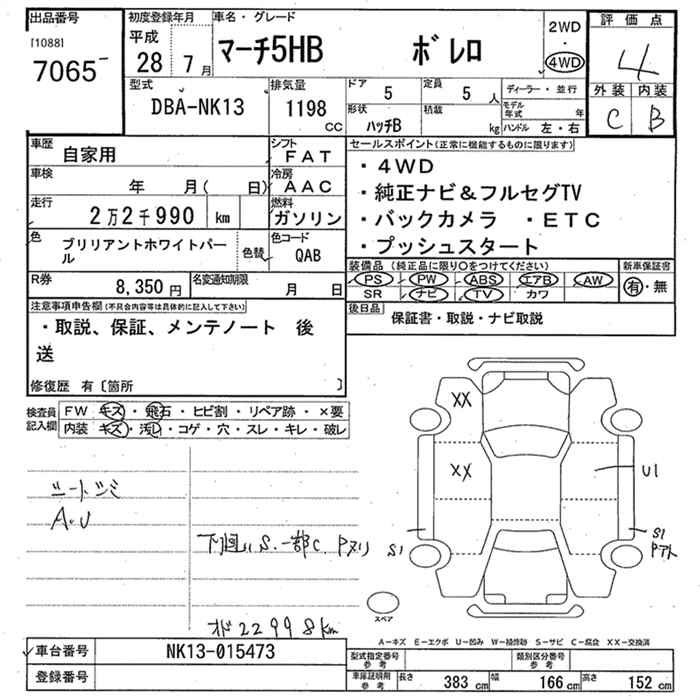 出品番号
[1088]
7065
初度登録年月
平成
28 7月
車名・グレード
マーチ5HB ボレロ
2WD
・
4WD
評価点
4
外装 内装
C B
型式
DBA-NK13
排気量
1198 CC
ドア 5
定員 5 人
形状 ハッチB
積載 kg
ディーラー・並行
モデル年式 年
ハンドル 左・右
車歴 自家用
シフト FAT
車検 年 月( 日)
冷房 AAC
走行 2万2千990 km
燃料 ガソリン
色 ブリリアントホワイトパール
色替
色コード QAB
R券 8,350円
名変通知期限 月 日
セールスポイント(正常に機能するものに限ります)
・4WD
・純正ナビ&フルセグTV
・バックカメラ ・ETC
・プッシュスタート
装備品 (純正品に限り○をつけてください)
PS PW ABS エアB AW
SR ナビ TV カワ
新車保証書
有・無
注意事項申告欄(不具合内容等は具体的に記入して下さい)
・取説、保証、メンテノート 後送
修復歴 有〔箇所 〕
後日品 保証書・取説・ナビ取説
検査員記入欄
FW キズ・飛石・ヒビ割・リペア跡・×要
内装 キズ・汚れ・コゲ・穴・スレ・キレ・破レ
シートシミ
A・U
下廻りS.一部C.Pヌリ
オド 22998km
XX
XX
U1
S1
S1
Pアト
スペア
A-キズ E-エクボ U-凹み W-補修跡 S-サビ C-腐食 XX-交換済
車台番号 NK13-015473
登録番号
型式指定番号 参考
類別区分番号 参考
車庫証明用 参考
長さ 383 cm 幅 166 cm 高さ 152 cm